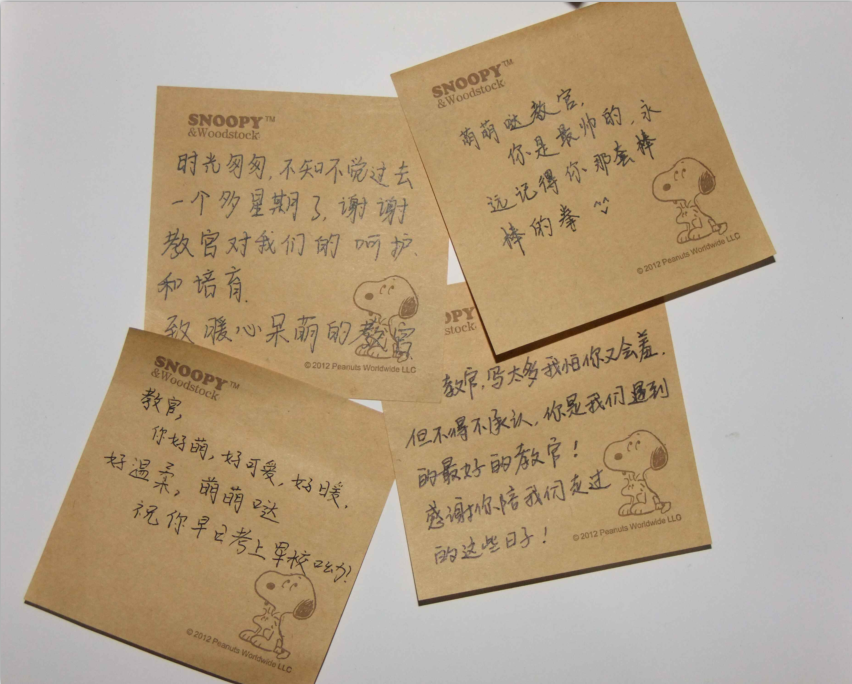 SNOOPY™
&Woodstock
时光匆匆,不知不觉过去
一个多星期了,谢谢
教官对我们的呵护
和培育.
致暖心呆萌的教官
©2012 Peanuts Worldwide LLC
SNOOPY™
&Woodstock
萌萌哒教官,
你是最帅的,永
远记得你那套棒
棒的拳
©2012 Peanuts Worldwide LLC
SNOOPY™
&Woodstock
教官,
你好萌,好可爱,好暖,
好温柔,萌萌哒
祝你早日考上军校
©2012 Peanuts Worldwide LLC
OPY™
stock
教官,写太多我怕你又会羞.
但不得不承认,你是我们遇到
的最好的教官!
感谢你陪我们走过
的这些日子!
©2012 Peanuts Worldwide LLC